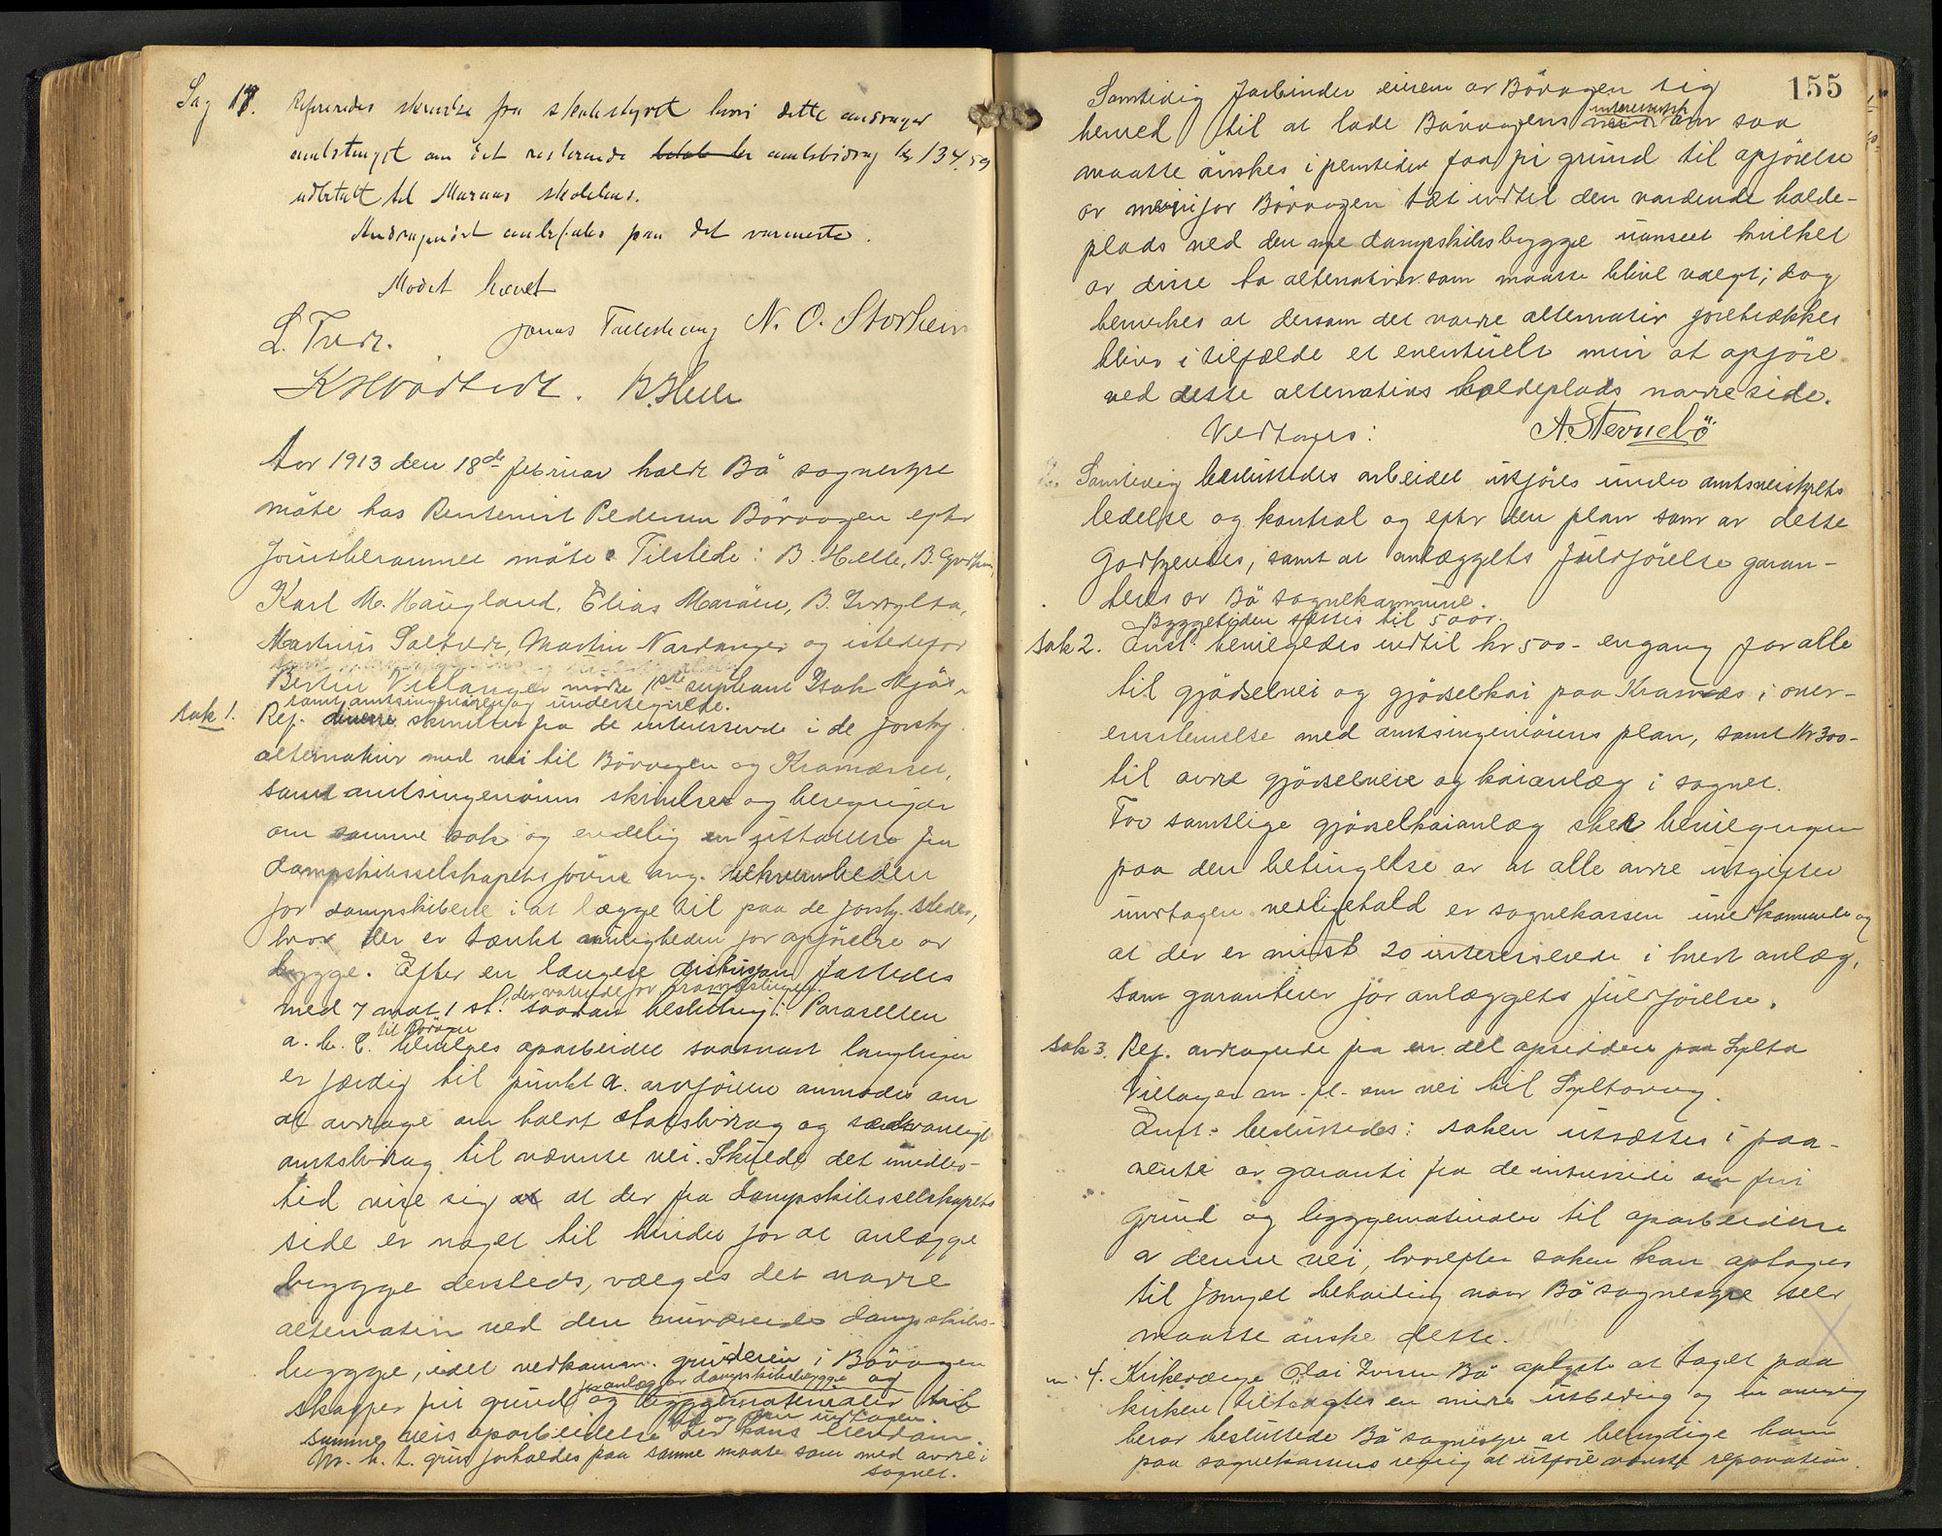 Sag 17. Refereredes skrivelse fra skolestyret hvori dette andrager
amtstinget om det resterende amtsbidrag kr 134,59
udbetalt til Maraas skolehus.
Andragendet anbefales paa det varmeste.
Mødet hævet
L. Tvedt. Jonas N. O. Storheim
B. Helle
Aar 1913 den 18de februar holdt Bö sognestyre
möte hos Rentenist Pedersen Börvagen efter
forutberammet möte. Tilstede: B. Helle, B.
Karl M. Haugland, Elias Maröen, B. Indsylta,
Martinus Saltvedt, Martin Nordanger og istedefor
Bertin Villanger mötte 1ste supleant Isak
samt amtsingeniören og undertegnede.
sak 1. Ref. diverse skrivelser fra de interesserede i de forskj.
alternativer med vei til Börvagen og Kramnesset,
samt amtsingeniörens skrivelser og beregninger
om samme sak og endelig en uttalelse fra
dampskibsselskapets förere ang. bekvemheden
for dampskibene i at lægge til paa de forskj. steder,
hvor der er tænkt muligheden for opförelse av
brygge. Efter en længere diskusjon fattedes
der votrede for
med 7 mot 1 st. saadan beslutning: Parasellen
til Börvagen
a. b. c. bevilges oparbeidet saasnart
er færdig til punkt a. anmodes om
at andrage om halvt statsbidrag og sedvanligt
amtsbidrag til nævnte vei. Skulde det imidler-
tid vise sig at der fra dampskibsselskapets
side er noget til hinder for at anlægge
brygge dersteds, vælges det nordre
alternativ ved den nuværende dampskibs-
brygge, idet vedkomm. grundeiere i Börvagen
for anlæg av dampskibsbrygge og
skaffer fri grund og byggematerialer til
samme veis oparbeidelse over hans eiendom.
M. h. t. grus forholdes paa samme maate som med andre i
sognet.
155
Samtidig forbinder eieren av Börvagen sig
herved til at lade Börvagens som saa
maatte önskes i fremtiden faa fri grund til opförelse
av för Börvagen tæt indtil den vordende holde-
plads ved den nye dampskibsbrygge uanset hvilket
av disse to alternativer som maatte blive valgt; dog
bemerkes at dersom det nordre alternativ foretrækkes
blir i tilfælde et eventuelt at opföre
ved dette alternativs holdeplads nordre side.
Vedtages: A. Stevnebö
2. Samtidig besluttedes arbeidet utföres under amtsveistyrets
ledelse og kontrol og efter den plan som av dette
godkjendes, samt at anlæggets fuldförelse garan-
teres av Bö sognekommune.
Byggetiden sættes til 5 aar.
sak 2. Enst. bevilgedes indtil kr 500 - engang for alle
til gjödselvei og gjödselkai paa Kramnes i over-
enstemelse med amtsingeniörens plan, samt kr 300 -
til andre gjödselveie og kaianlæg i sognet.
For samtlige gjödselkaianlæg sker bevilgningen
paa den betingelse av at alle andre utgifter
undtagen vedligehold er sognekassen uvedkommende og
at der er minst 20 interesserede i hvert anlæg,
som garanterer för anlæggets fuldförelse.
sak 3. Ref. andragende fra en del opsiddere paa Sylta
Villanger m. fl. om vei til Syltavaag.
Enst. besluttedes: saken utsættes i paa-
vente av garanti fra de interesserede om fri
grund og byggematerialer til oparbeidelse
av denne vei, hvorefter saken kan optages
til fornyet behandling naar Bö sognestyre selv
maatte önske dette.
4. Kirkeværge Olai Iversen Bö oplyste at taget paa
kirken tiltrængtes en mindre utbedring og i anledning
herav besluttede Bö sognestyre at bemyndige ham
paa sognekassens regning at utföre nævnte reparation.